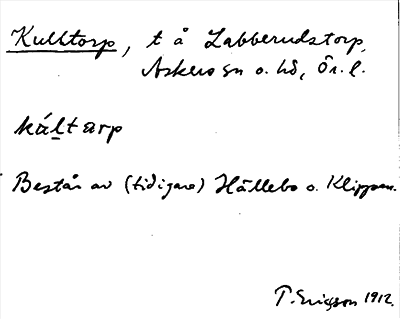 Kulltorp, t å Labberudstorp,
Askers sn o. hd, Ör. l.
kúltarp
Består av (tidigare) Hällebo o. Klippan.
T. Ericsson 1912.